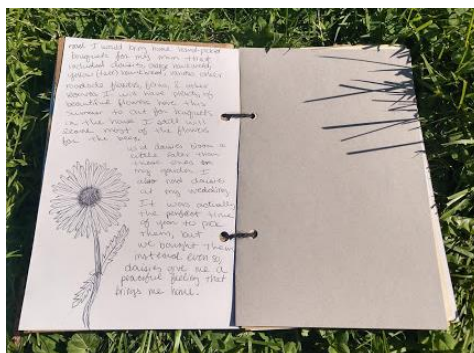 road I would bring home hand-picked
bouquets for my mom that
included daisies, orange hawkweed,
yellow (tall) hawkweed, various other
roadside flowers, ferns, & other
We have plenty of
beautiful flowers here this
summer to cut for bouquets
in the house. I still will
leave most of the flowers
for the bees.
Wild daisies bloom a
little later than
these ones in
my garden. I
also had daisies
at my wedding.
It was actually
the perfect time
of year to pick
them, but
we bought them
instead. Even so,
daisies give me a
peaceful feeling that
brings me home.